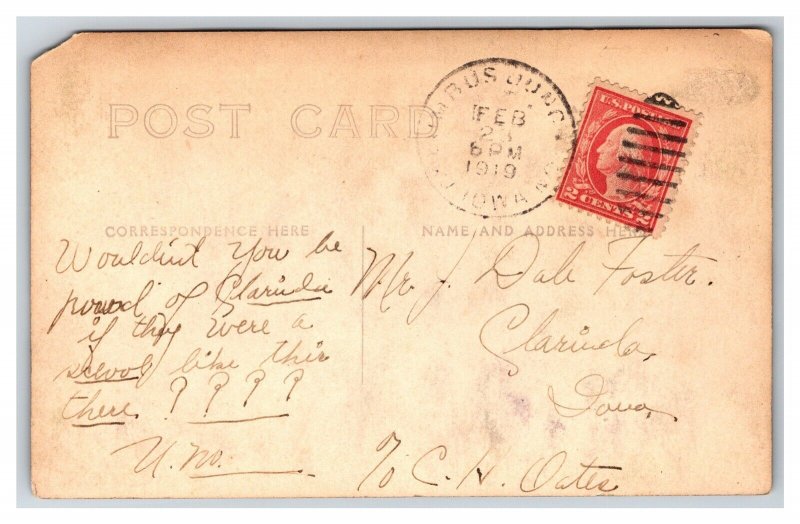 POST CARD
MBUS JUNC
FEB
6 PM
1919
IOWA
U.S. POSTAGE
2 CENTS 2
CORRESPONDENCE HERE
NAME AND ADDRESS HERE
Wouldn't you be
proud of Clarinda
if they were a
school like this
there. ? ? ? ?
U. No.
Mr. J. Dale Foster.
Clarinda,
Iowa,
% C. H. Oates